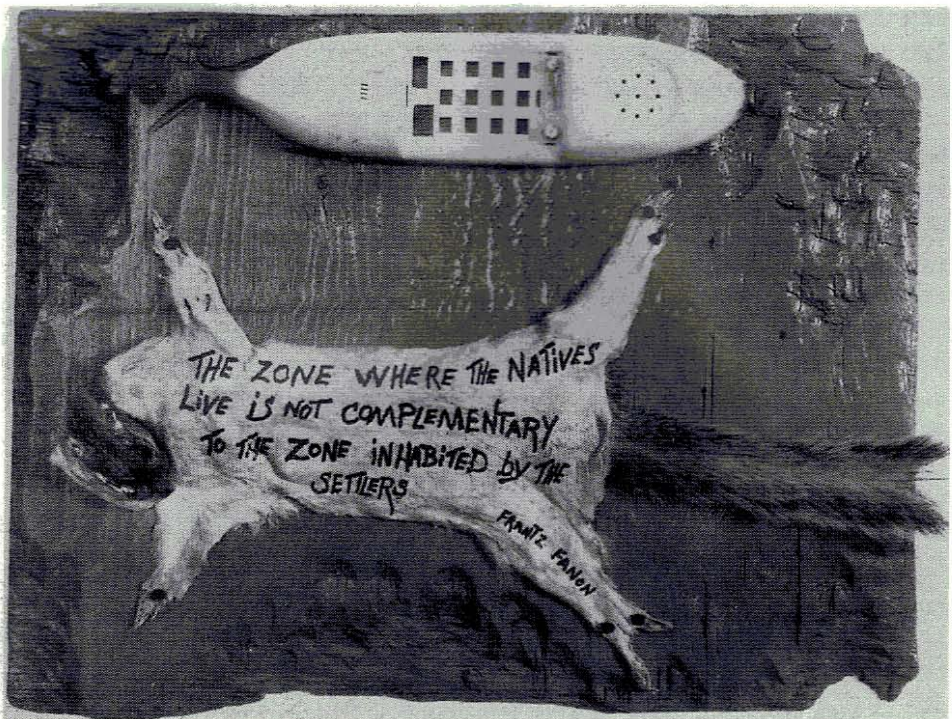 THE ZONE WHERE THE NATIVES
LIVE iS NOT COMPLEMENTARY
TO THE ZONE iNHABiTED by THE
SETTLERS
FRANTZ FANON